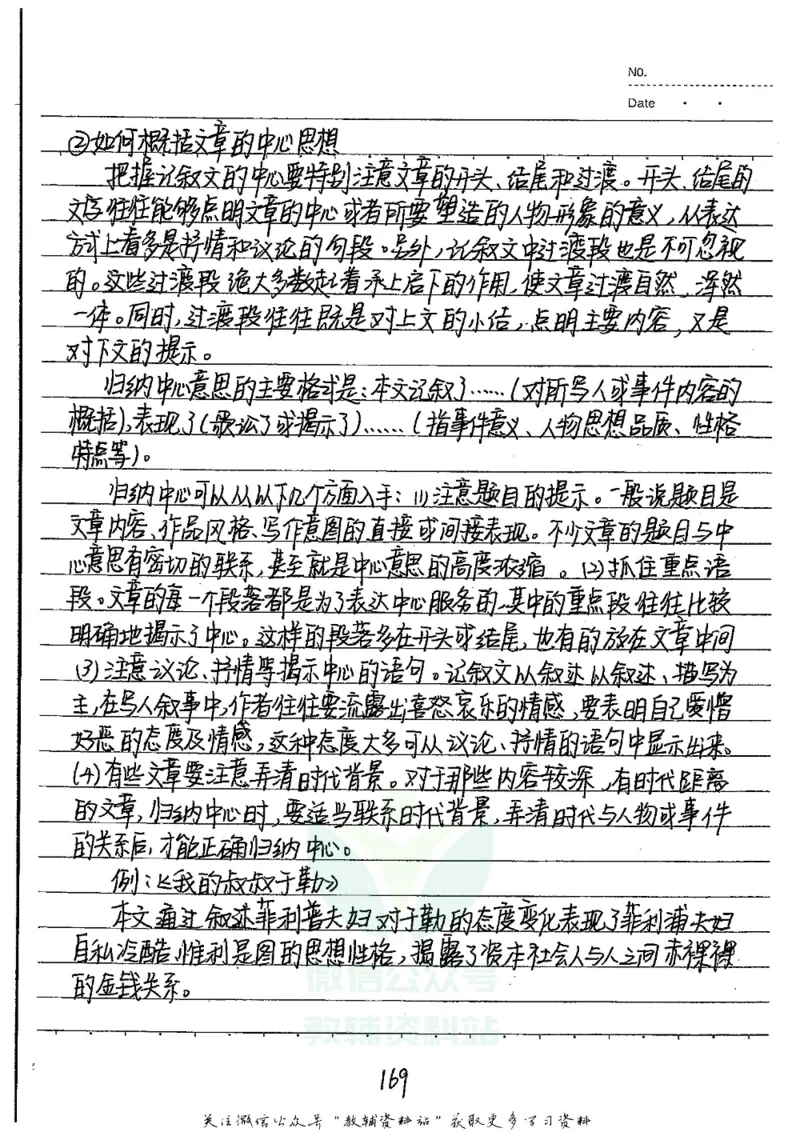 No.
Date
②如何概括文章的中心思想
把握记叙文的中心要特别注意文章的开头、结尾和过渡。开头、结尾的
文字往往能够点明文章的中心或者所要塑造的人物形象的意义,从表达
方式上看多是抒情和议论的句段。另外,记叙文中过渡段也是不可忽视
的。这些过渡段绝大多数起着承上启下的作用,使文章过渡自然、浑然
一体。同时,过渡段往往既是对上文的小结,点明主要内容,又是
对下文的提示。
归纳中心意思的主要格式是:本文记叙了……(对所写人或事件内容的
概括),表现了(歌讼了或揭示了)……(指事件意义、人物思想品质、性格
特点等)。
归纳中心可以从从以下几个方面入手:(1)注意题目的提示。一般说题目是
文章内容、作品风格、写作意图的直接或间接表现。不少文章的题目与中
心意思有密切的联系,甚至就是中心意思的高度浓缩。(2)抓住重点语
段。文章的每一个段落都是为了表达中心服务的,其中的重点段往往比较
明确地揭示了中心。这样的段落多在开头或结尾,也有的放在文章中间
(3)注意议论、抒情等揭示中心的语句。记叙文以叙述以叙述、描写为
主,在写人叙事中,作者往往要流露出喜怒哀乐的情感,要表明自己爱憎
好恶的态度及情感,这种态度大多可从议论、抒情的语句中显示出来。
(4)有些文章要注意弄清时代背景。对于那些内容较深,有时代距离
的文章,归纳中心时,要适当联系时代背景,弄清时代与人物或事件
的关系后,才能正确归纳中心。
例:《我的叔叔于勒》
本文通过叙述菲利普夫妇对于勒的态度变化表现了菲利浦夫妇
自私冷酷,惟利是图的思想性格,揭露了资本社会人与人之间赤裸裸
的金钱关系。
微信公众号
教辅资料站
169
关注微信公众号"教辅资料站"获取更多学习资料